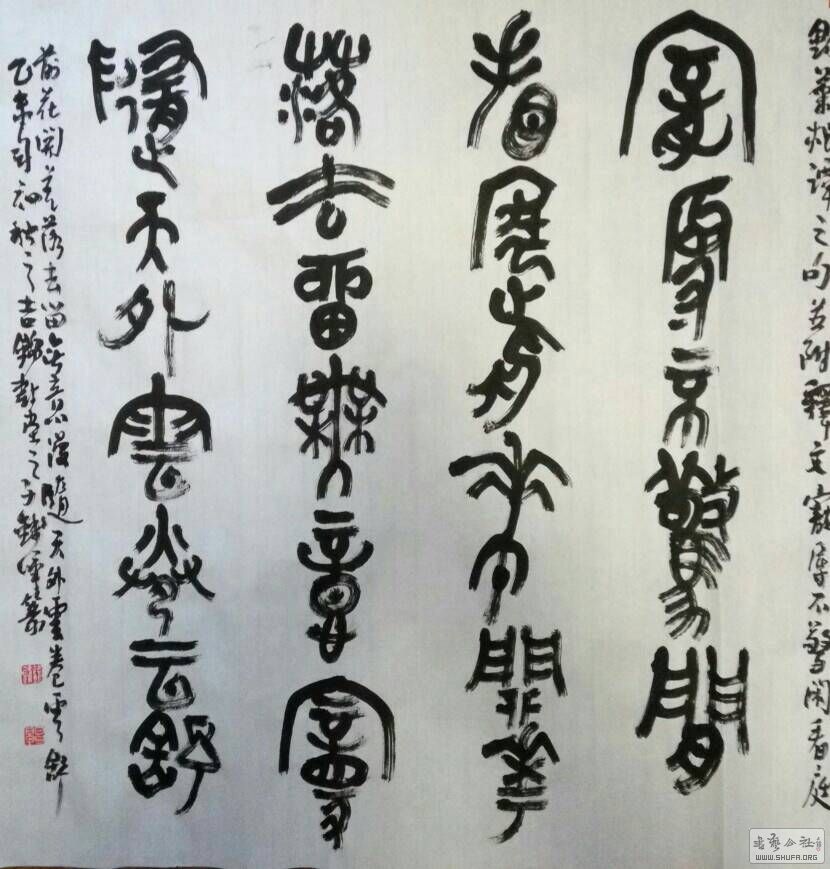 菜根譚之句并附釋文寵辱不驚閑看庭
寵辱不驚閒
看庭前華開華
落去留無意
隨天外雲卷云舒
前花開花落去留無意漫隨天外雲卷雲舒
乙未初秋之吉
書藝公社
WWW.SHUFA.ORG